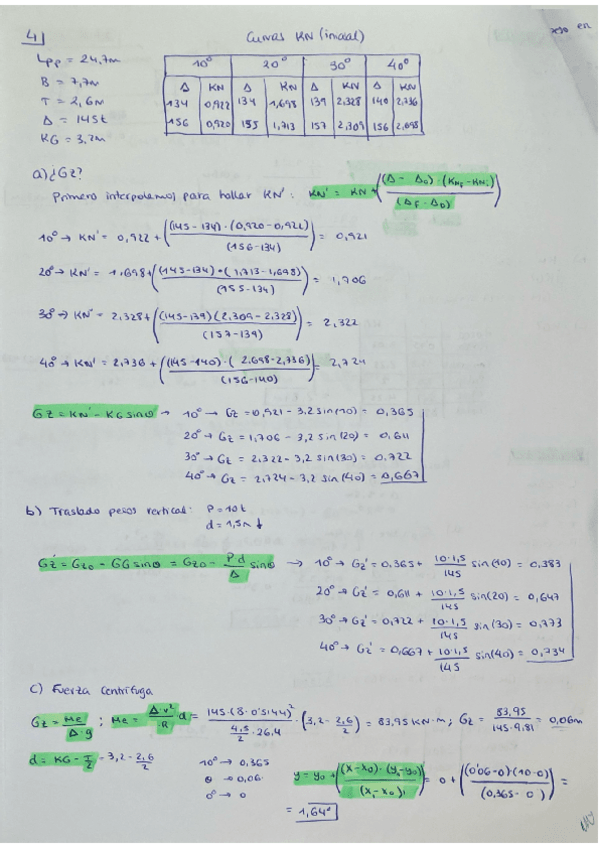 4
Curvas KN (inicial)
Lpp = 24,7m
B = 7,7m
T = 2,6m
Δ = 145t
KG = 3,2m
10° 20° 30° 40°
Δ KN Δ KN Δ KN Δ KN
134 0,922 134 1,698 139 2,328 140 2,736
156 0,920 155 1,713 157 2,309 156 2,698
a) ¿Gz?
Primero interpolamos para hallar KN': KN' = KN + ((Δ - Δ0) · (KNf - KNi) / (Δf - Δ0))
10° → KN' = 0,922 + ((145-134) · (0,920-0,922) / (156-134)) = 0,921
20° → KN' = 1,698 + ((145-134) · (1,713-1,698) / (155-134)) = 1,706
30° → KN' = 2,328 + ((145-139)(2,309-2,328) / (157-139)) = 2,322
40° → KN' = 2,736 + ((145-140) · (2,698-2,736) / (156-140)) = 2,724
Gz = KN' - KG sinθ → 10° → Gz = 0,921 - 3,2 sin(10) = 0,365
20° → Gz = 1,706 - 3,2 sin(20) = 0,611
30° → Gz = 2,322 - 3,2 sin(30) = 0,722
40° → Gz = 2,724 - 3,2 sin(40) = 0,667
b) Traslado pesos vertical: P = 10t
d = 1,5m ↓
Gz' = Gz0 - GG sinθ = Gz0 - P·d/Δ sinθ → 10° → Gz' = 0,365 + 10·1,5/145 sin(10) = 0,383
20° → Gz' = 0,611 + 10·1,5/145 sin(20) = 0,647
30° → Gz' = 0,722 + 10·1,5/145 sin(30) = 0,773
40° → Gz' = 0,667 + 10·1,5/145 sin(40) = 0,734
c) Fuerza centrífuga
Gz = Me/Δ·g ; Me = Δ·v²/R d = 145·(8·0'5144)²/(4,5/2·26,4) · (3,2 - 2,6/2) = 83,95 KN·m ; Gz = 83,95/145·9,81 = 0,06m
d = KG - T/2 = 3,2 - 2,6/2
10° → 0,365
θ → 0,06
0° → 0
y = y0 + ((x-x0)·(y1-y0) / (x1-x0)) = 0 + ((0'06-0)(10-0) / (0,365-0)) =
= 1,64°